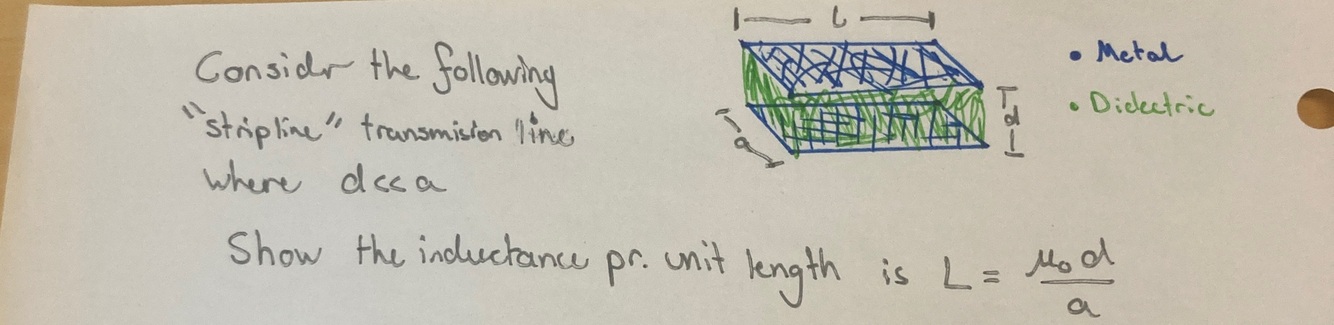 Consider the following
"stripline" transmision line
where d<<a
L
• Metal
• Dielectric
d
a
Show the inductance pr. unit length is L = μ₀d/a